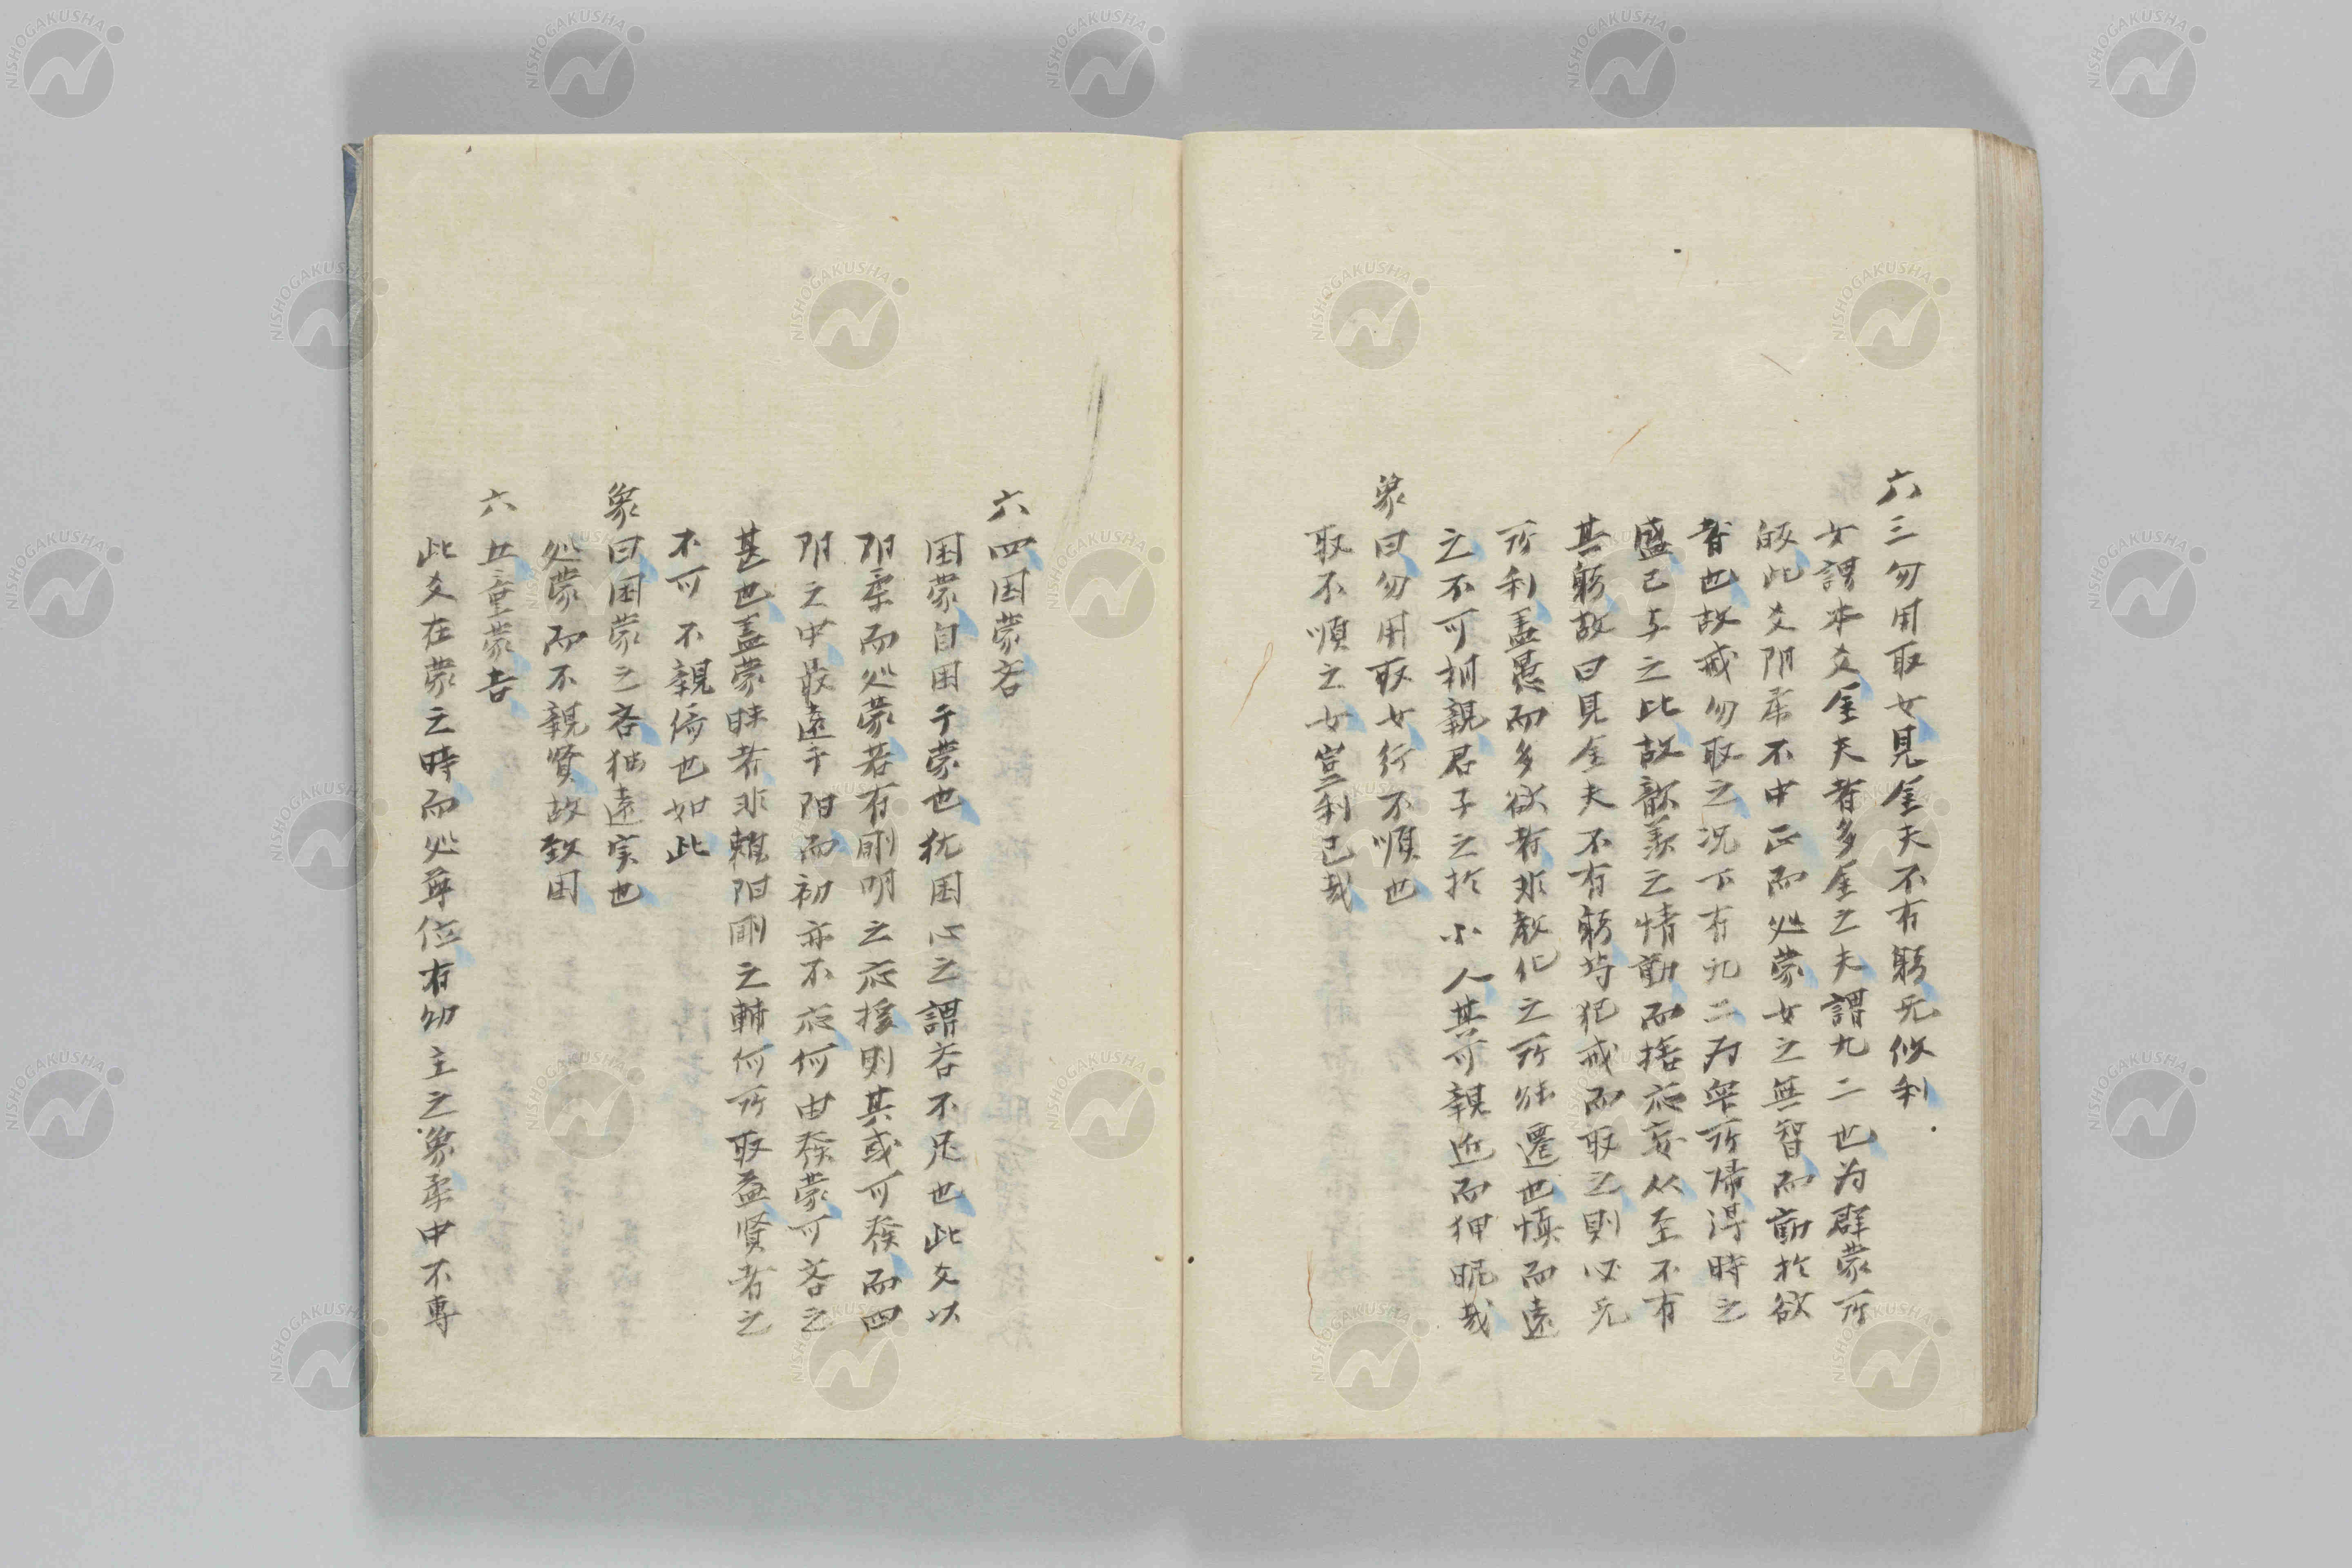 六三勿用取女見金夫不有躬无攸利
女謂本爻金夫者多金之夫謂九二也为群蒙所
皈此爻阴柔不中正而処蒙女之無智而動於欲
者也故戒勿取之况下有九二为众所帰得時之
盛己与之比故歆羡之情動而捨应妄从至不有
其躬故曰見金夫不有躬若犯戒而取之則必无
所利盖愚而多欲者非教化之所能遷也慎而遠
之不可相親君子之於小人其可親近而狎昵哉
象曰勿用取女行不順也
取不順之女豈利己哉
六四困蒙吝
困蒙自困于蒙也犹困心之謂吝不足也此爻以
阴柔而処蒙若有剛明之应援則其或可發而四
阴之中最遠于阳而初亦不应何由發蒙可吝之
甚也盖蒙昧者非賴阳剛之輔何所取益賢者之
不可不親倚也如此
象曰困蒙之吝独遠实也
処蒙而不親賢故致困
六五童蒙吉
此爻在蒙之時而処尊位有幼主之象柔中不專
NISHOGAKUSHA